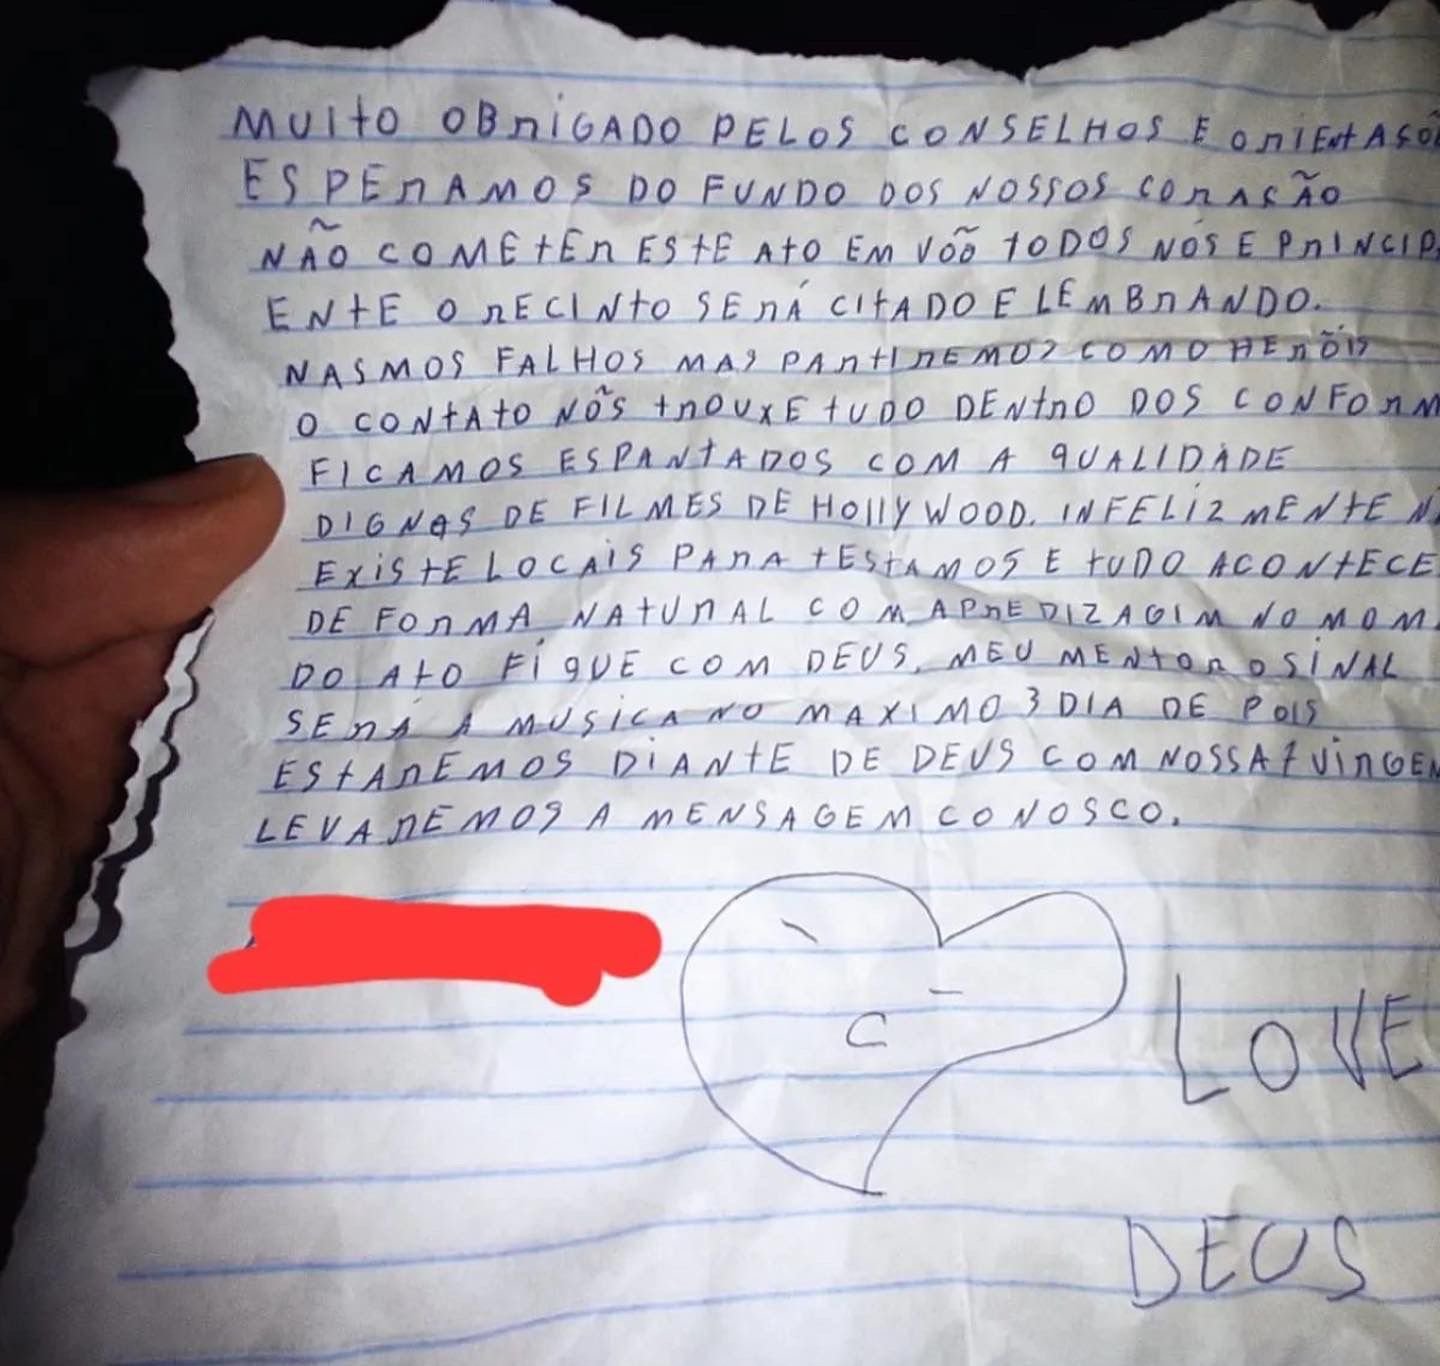 MUITO OBRIGADO PELOS CONSELHOS E ORIENTASÕ
ESPERAMOS DO FUNDO DOS NOSSOS CORASÃO
NÃO COMETER ESTE ATO EM VÕÕ TODOS NÓS E PRINCIP
ENTE O RECINTO SERÁ CITADO E LEMBRANDO.
NASMOS FALHOS MAS PARTIREMOS COMO HERÕIS
O CONTATO NÕS TROUXE TUDO DENTRO DOS CONFORM
FICAMOS ESPANTADOS COM A QUALIDADE
DIGNAS DE FILMES DE HOLLYWOOD. INFELIZMENTE N
EXISTE LOCAIS PARA TESTAMOS E TUDO ACONTECE
DE FORMA NATURAL COM APREDIZAGIM NO MOM
DO ATO FIQUE COM DEUS. MEU MENTOR O SINAL
SERÁ A MUSICA NO MAXIMO 3 DIA DE POIS
ESTAREMOS DIANTE DE DEUS COM NOSSA 7 VIRGEN
LEVAREMOS A MENSAGEM CONOSCO.
LOVE
DEUS